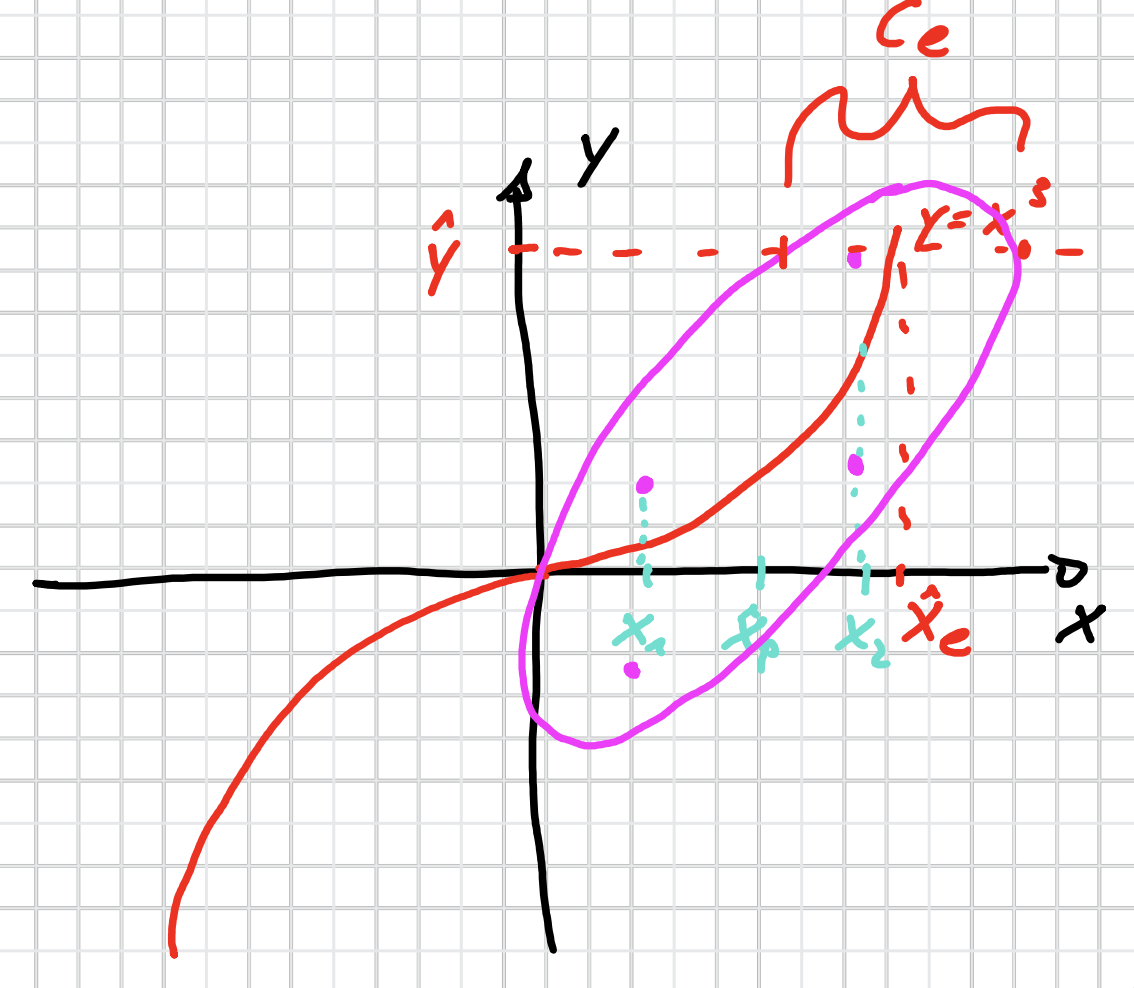 Ce
y
ŷ
y=x³
x₁
x₂
x̂e
x